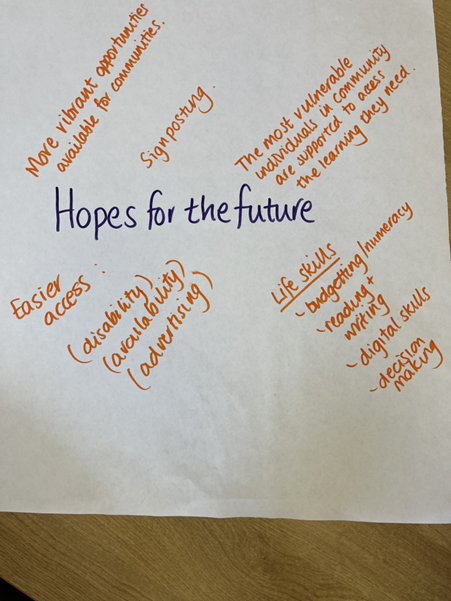 More vibrant opportunities
available for communities.
Signposting.
The most vulnerable
individuals in community
are supported to access
the learning they need.
Hopes for the future
Easier
access :
(disability)
(availability)
(advertising)
Life skills
- budgetting/numeracy
- reading +
writing
- digital skills
- decision
making